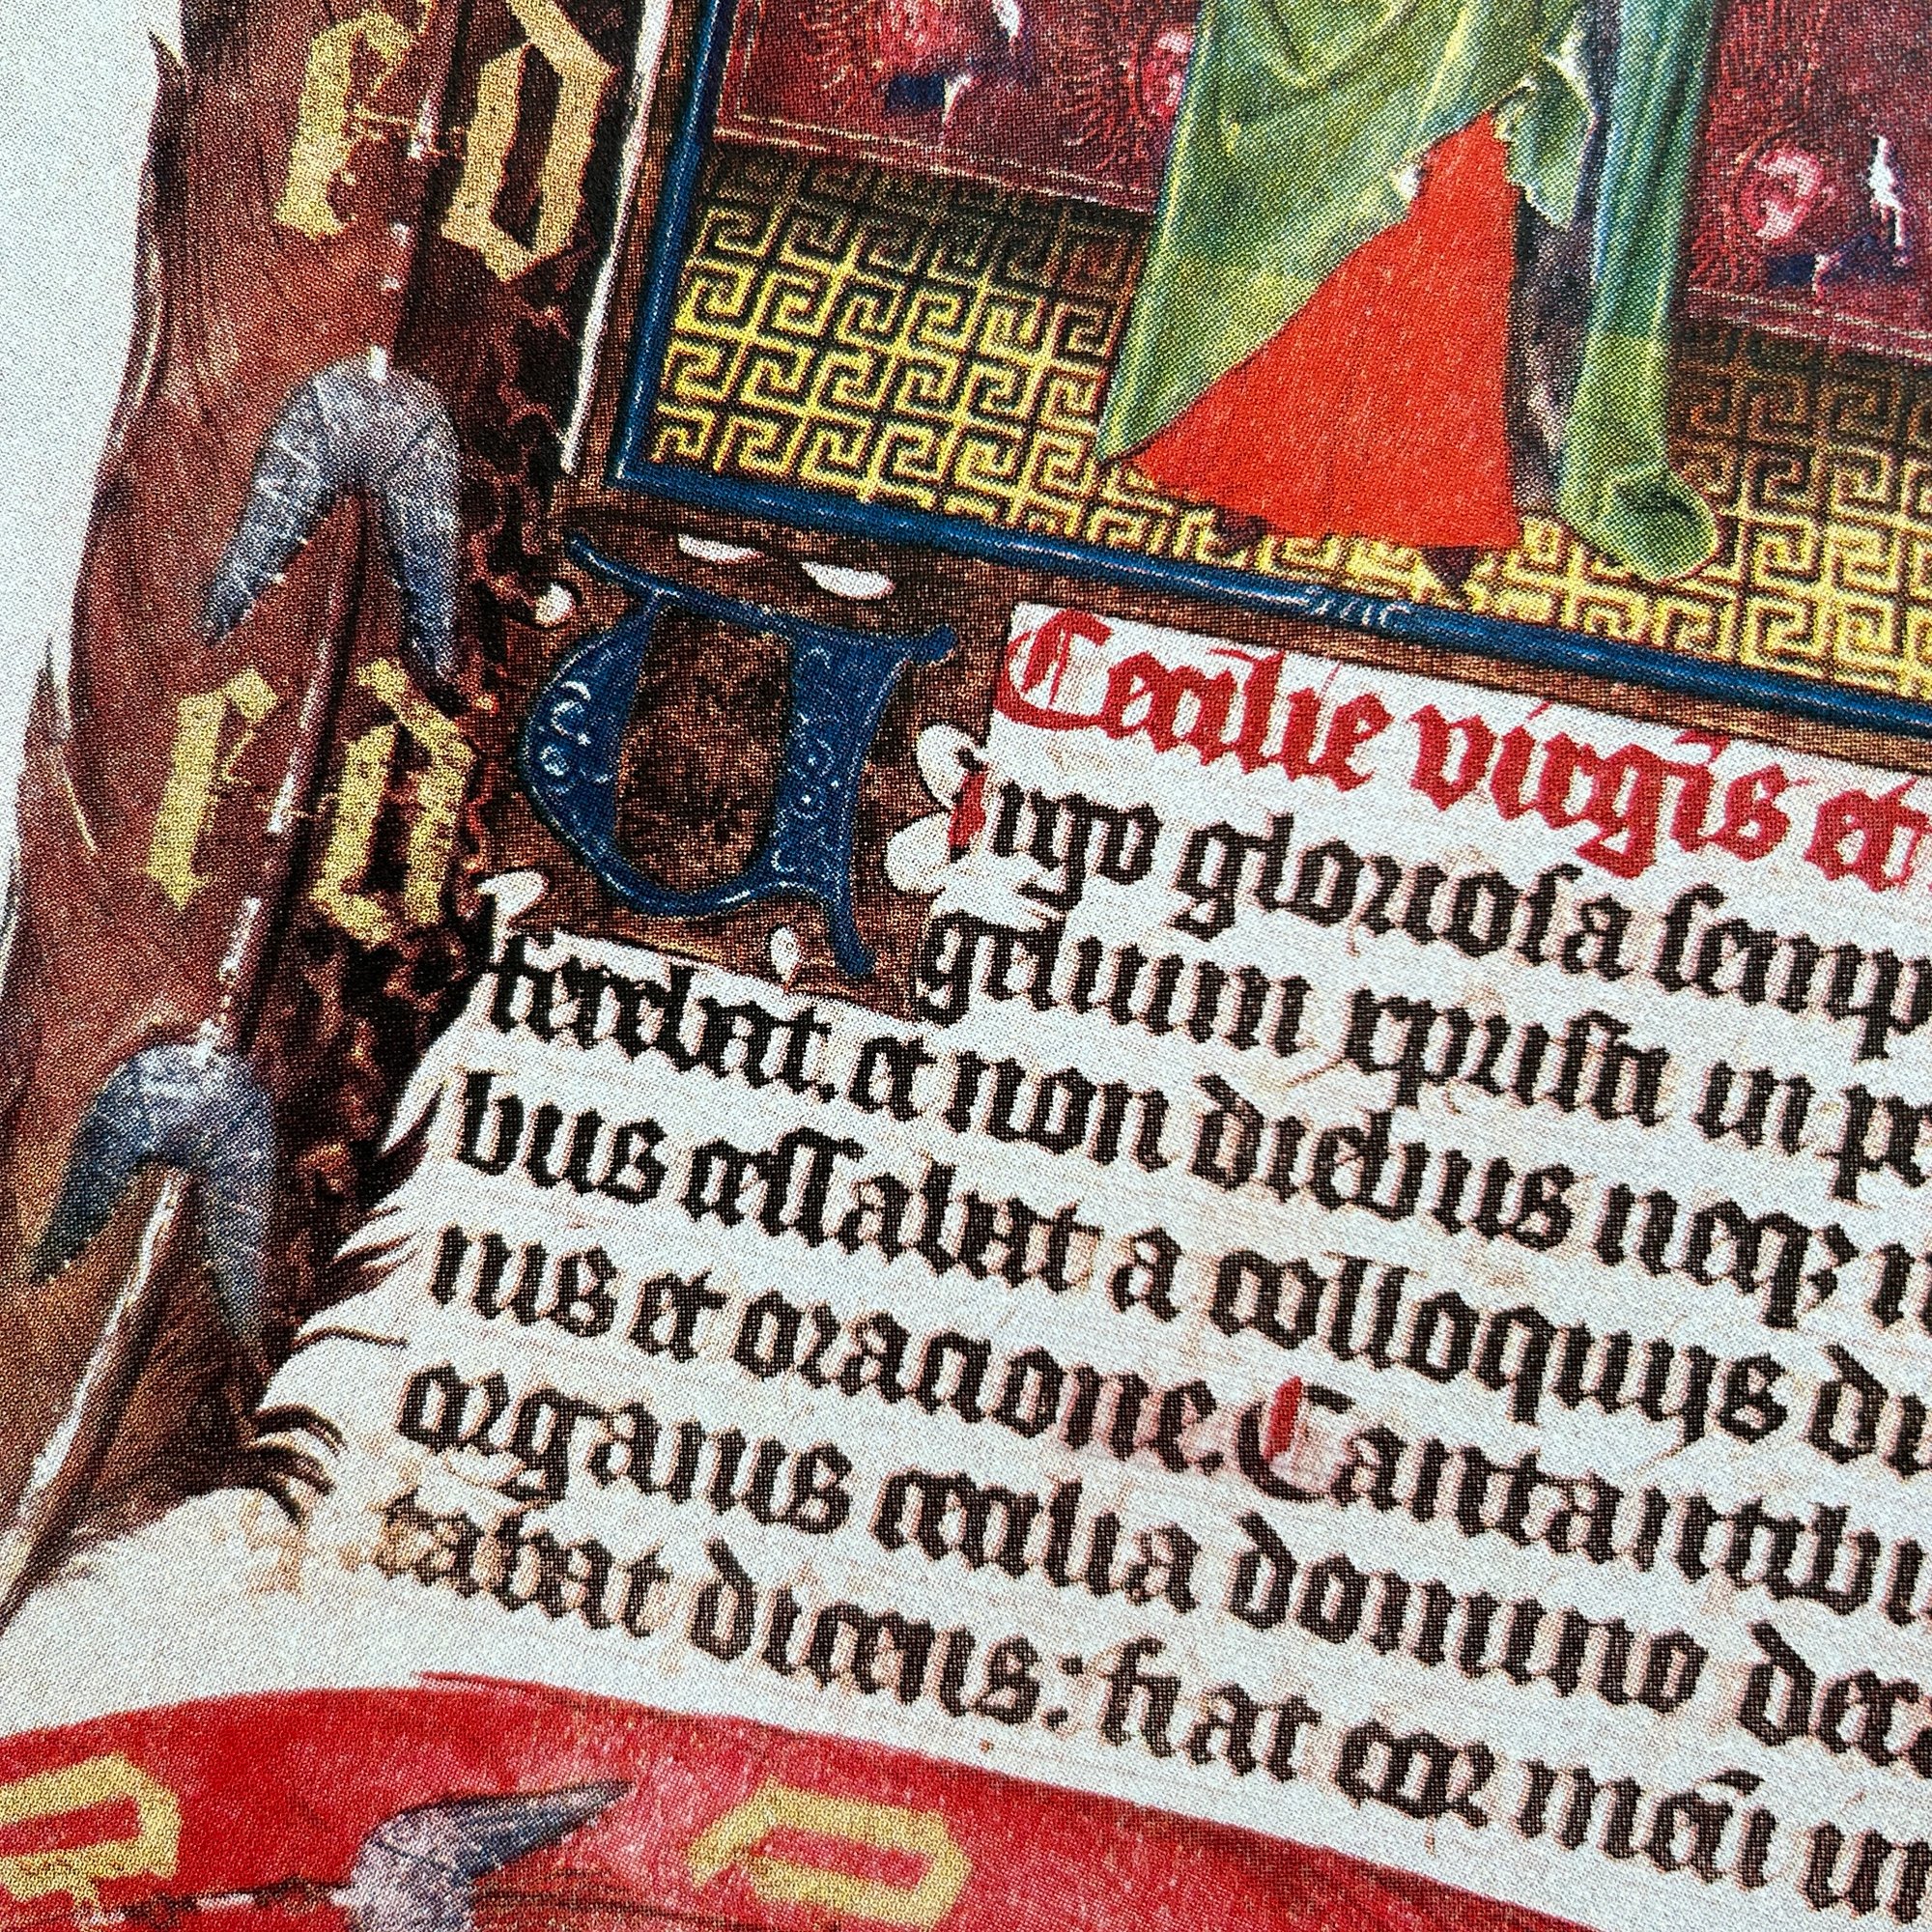 e d
e d
Cecilie virgīs et
Uirgo gloriosa semp
gelium xpristi in p
ferebat. et non diebus neqꝫ n
bus cessabat a colloquijs di
nis et oracione. Cantantibu
organis cecilia domino dec
tabat dicens: fiat cor meū in